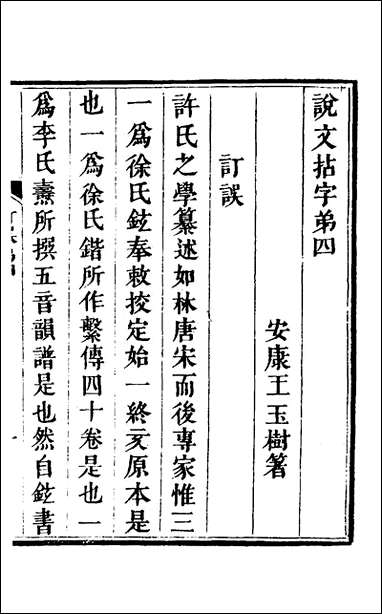 說文拈字弟四
安康王玉樹箸
訂誤
許氏之學纂述如林唐宋而後專家惟三
一爲徐氏鉉奉敕挍定始一終亥原本是
也一爲徐氏鍇所作繫傳四十卷是也一
爲李氏燾所撰五音韻譜是也然自鉉書